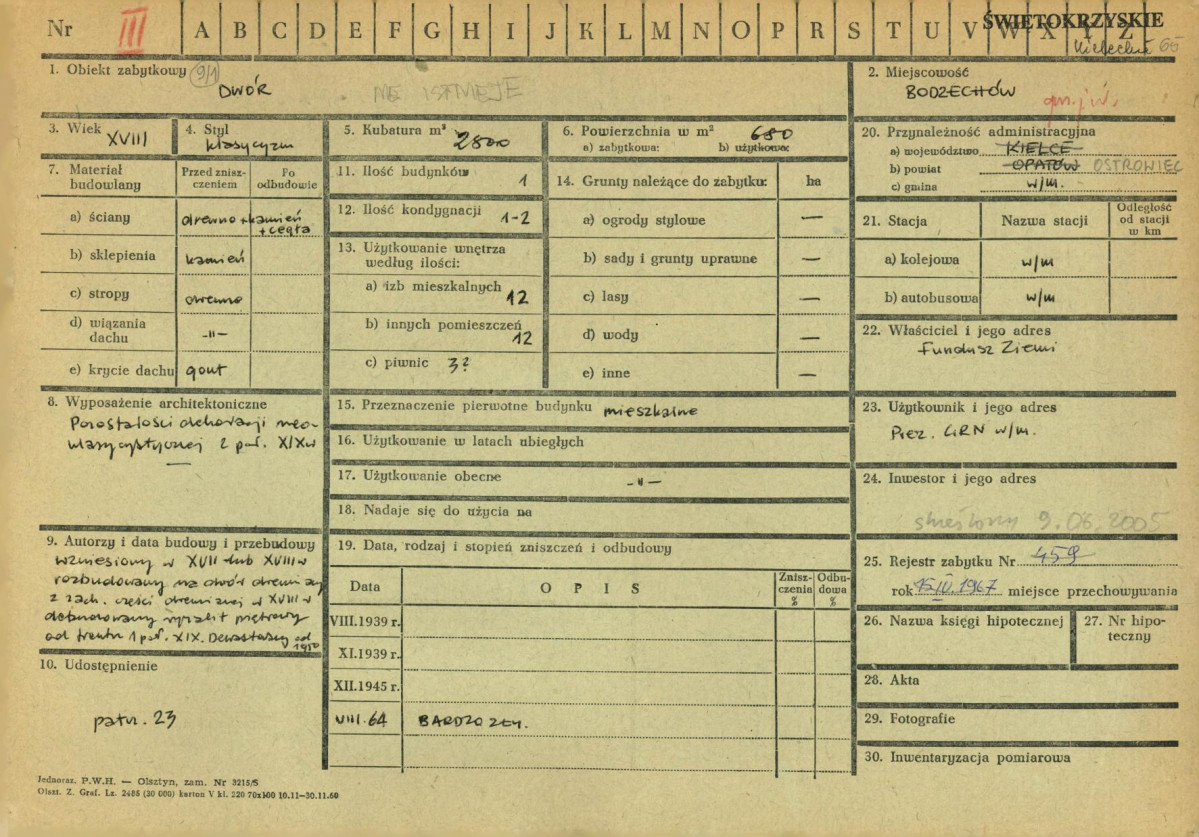 Nr III A B C D E F G H I J K L M N O P R S T U V W X Y Z
ŚWIĘTOKRZYSKIE
1. Obiekt zabytkowy 9/1
DWÓR NIE ISTNIEJE
2. Miejscowość
BODZECHÓW
gm. j.w.
3. Wiek
XVIII
4. Styl
klasycyzm
5. Kubatura m³
2800
6. Powierzchnia w m² 680
a) zabytkowa: b) użytkowa:
7. Materiał budowlany
Przed zniszczeniem
Po odbudowie
a) ściany drewno + kamień
+ cegła
b) sklepienia kamień
c) stropy drewno
d) wiązania
dachu -"-
e) krycie dachu gont
8. Wyposażenie architektoniczne
Pozostałości dekoracji neo-
klasycystycznej 2 poł. XIX w
9. Autorzy i data budowy i przebudowy
wzniesiony w XVII lub XVIII w
rozbudowany na dwór drewniany
z zach. części drewnianej w XVIII w
dobudowany ryzalit piętrowy
od frontu 1 poł. XIX. Dewastacja od
1950
10. Udostępnienie
patrz. 23
11. Ilość budynków 1
12. Ilość kondygnacji 1-2
13. Użytkowanie wnętrza
według ilości:
a) izb mieszkalnych 12
b) innych pomieszczeń 12
c) piwnic 3?
14. Grunty należące do zabytku: ha
a) ogrody stylowe —
b) sady i grunty uprawne —
c) lasy —
d) wody —
e) inne —
15. Przeznaczenie pierwotne budynku mieszkalne
16. Użytkowanie w latach ubiegłych
17. Użytkowanie obecne -"-
18. Nadaje się do użycia na
19. Data, rodzaj i stopień zniszczeń i odbudowy
Data
O P I S
Zniszczenia %
Odbudowa %
VIII.1939 r.
XI.1939 r.
XII.1945 r.
VIII.64 BARDZO ZŁY.
20. Przynależność administracyjna
a) województwo KIELCE
b) powiat OPATÓW OSTROWIEC
c) gmina w/m.
21. Stacja
Nazwa stacji
Odległość
od stacji
w km
a) kolejowa w/m
b) autobusowa w/m
22. Właściciel i jego adres
Fundusz Ziemi
23. Użytkownik i jego adres
Prez. GRN w/m.
24. Inwestor i jego adres
skreślony 9.06.2005
25. Rejestr zabytku Nr 459
rok 15.IV.1967 miejsce przechowywania
26. Nazwa księgi hipotecznej
27. Nr hipo-
teczny
28. Akta
29. Fotografie
30. Inwentaryzacja pomiarowa
Jednoraz. P.W.H. — Olsztyn, zam. Nr 3215/S
Olszt. Z. Graf. Lz. 2486 (30 000) karton V kl. 220 70x100 10.11—30.11.60